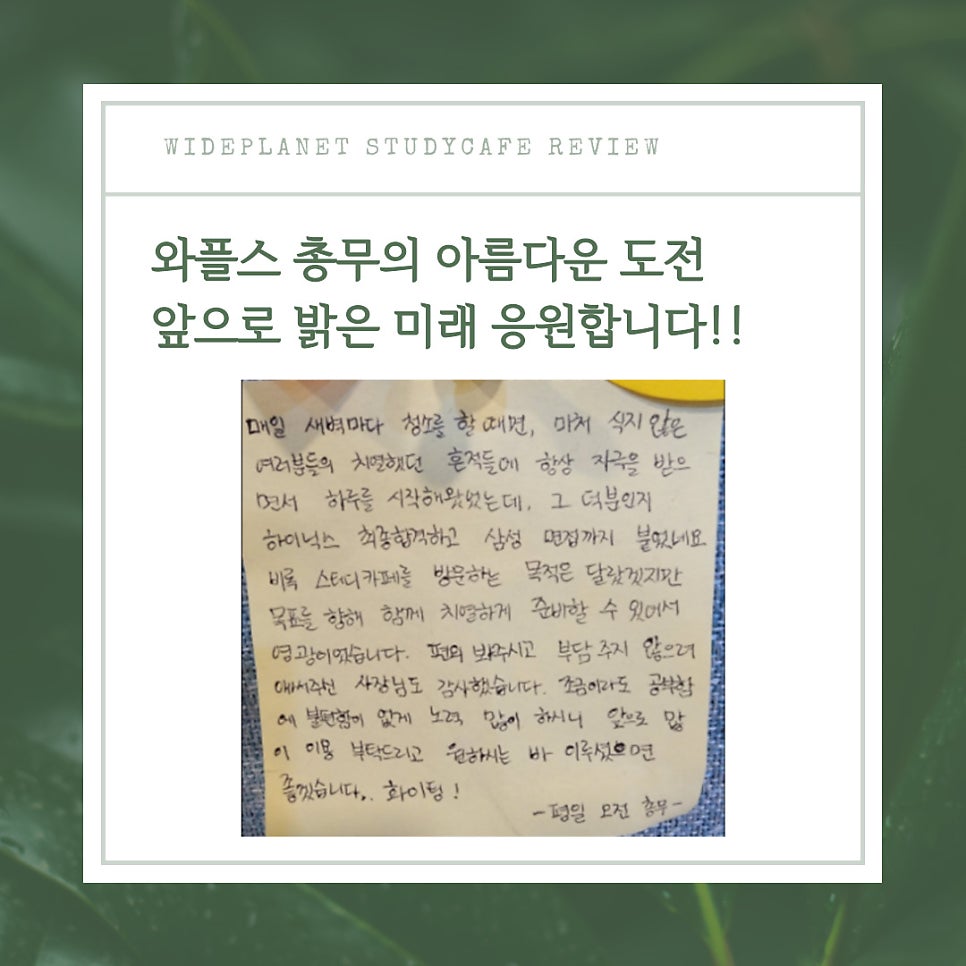 WIDEPLANET STUDYCAFE REVIEW
와플스 총무의 아름다운 도전
앞으로 밝은 미래 응원합니다!!
매일 새벽마다 청소를 할 때면, 마처 식지 않은
여러분들의 치열했던 흔적들에 항상 자극을 받으
면서 하루를 시작해왔었는데, 그 덕분인지
하이닉스 최종합격하고 삼성 면접까지 붙었네요
비록 스터디카페를 방문하는 목적은 달랐겠지만
목표를 향해 함께 치열하게 준비할 수 있어서
영광이었습니다. 편의 봐주시고 부담 주지 않으려
애써주신 사장님도 감사했습니다. 조금이라도 공부함
에 불편함이 없게 노력 많이 하시니 앞으로 많
이 이용 부탁드리고 원하시는 바 이루셨으면
좋겠습니다.. 화이팅!
- 평일 오전 총무 -